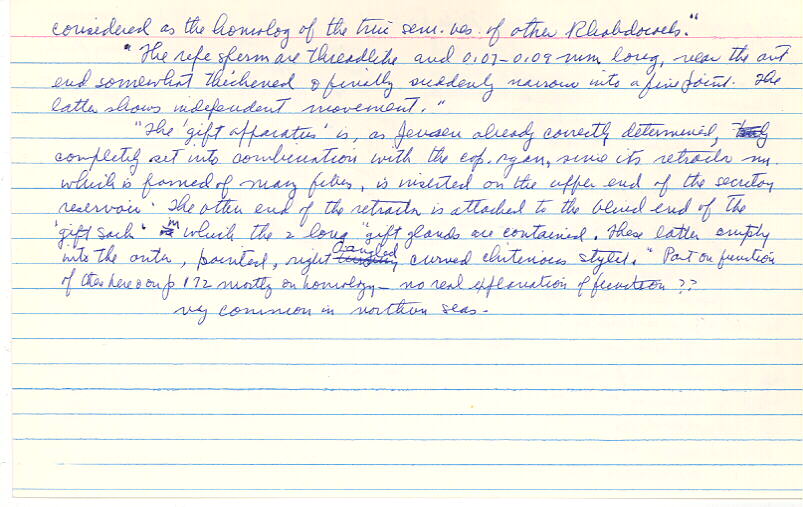 considered as the homolog of the true sem. ves. of other Rhabdocoels."
"The ripe sperm are threadlike and 0.07-0.09 mm long, near the ant
end somewhat thickened & finally suddenly narrow into a fine point. The
latter shows independent movement."
"The 'gift apparatus' is, as Jensen already correctly determined,
completely set into combination with the cop. organ, since its retractor m.
which is formed of many fibers, is inserted on the upper end of the secretory
reservoir. The other end of the retractor is attached to the blind end of the
'gift sack' in which the 2 long "gift glands are contained. These latter empty
into the outer, pointed, right angled curved chitenous stylet." Part on function
of these here & on p 172 mostly on homology - no real explanation of function ??
very common in northern seas -